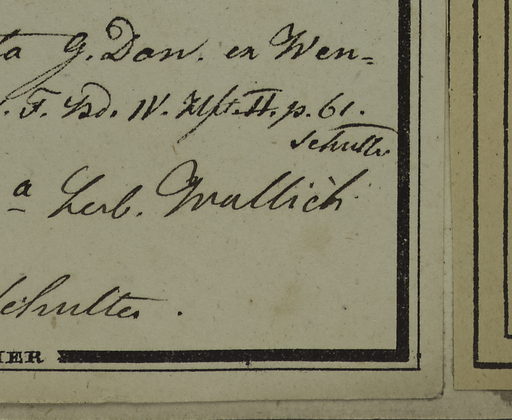 ta G. Don. ex Wen=
. F. Bd. IV. Hft. II. p. 61.
Schultes
a Herb. Wallich
Schultes .
IER